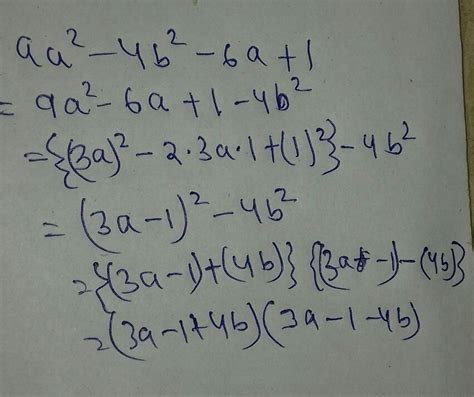 9a² - 4b² - 6a + 1
= 9a² - 6a + 1 - 4b²
= {(3a)² - 2·3a·1 + (1)²} - 4b²
= (3a - 1)² - 4b²
= {(3a - 1) + (4b)} {(3a - 1) - (4b)}
= (3a - 1 + 4b) (3a - 1 - 4b)